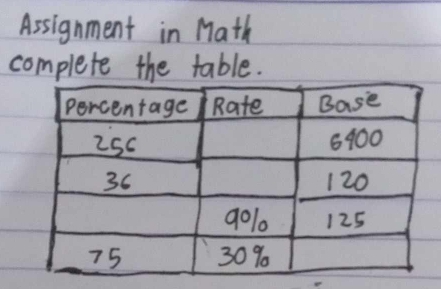 Assignment in Math
complete the table.
Percentage Rate Base
256 6400
36 120
9% 125
75 30%